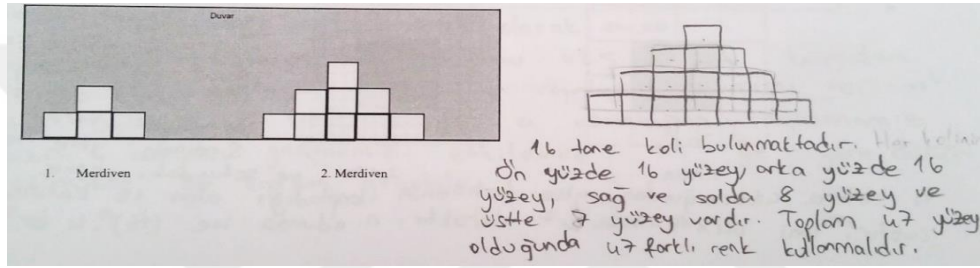 Duvar
1. Merdiven
2. Merdiven
16 tane koli bulunmaktadır.
Ön yüzde 16 yüzey, arka yüzde 16
yüzey, sağ ve solda 8 yüzey ve
üstte 7 yüzey vardır. Toplam 47 yüzey
olduğunda 47 farklı renk kullanmalıdır.